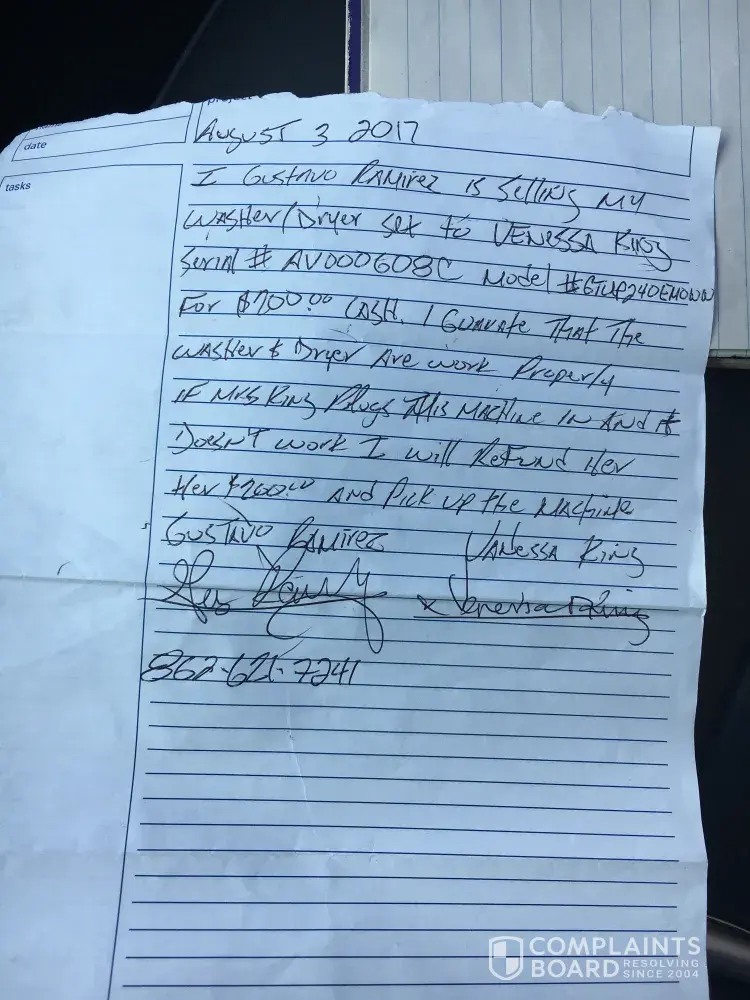 project
date
tasks
August 3 2017
I Gustavo Ramirez is selling my
washer/Dryer set to VENESSA King
Serial # AV000608C Model #GTUP240EM0WW
For $700.00 CASH. I Guarate That The
washer & Dryer Are work Properly
IF Mrs King Plugs This Machine IN And it
Doesn't work I will Refund Her
Her $700.00 AND Pick up the Machine
Gustavo Ramirez Vanessa King
x Venessa King
862-621-7241
COMPLAINTS
BOARD RESOLVING
SINCE 2004